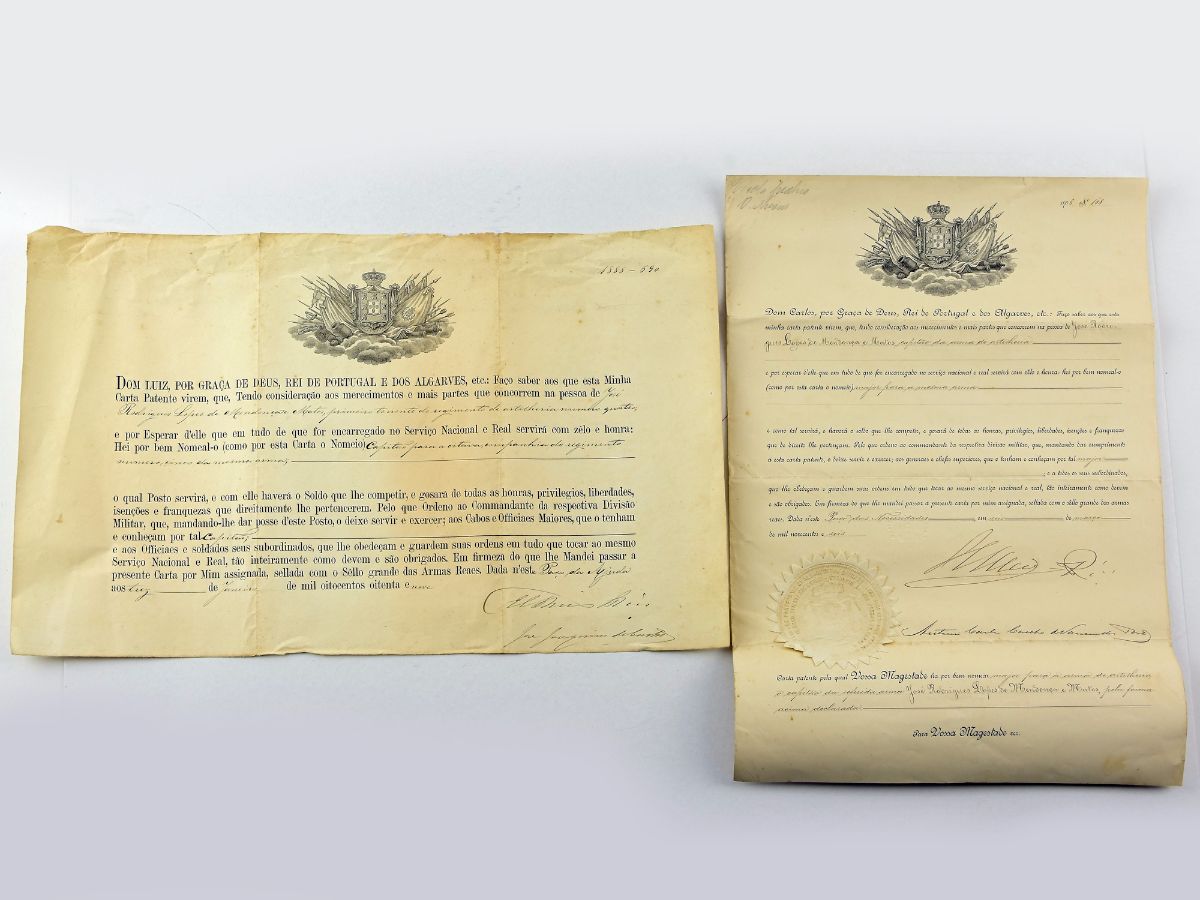 1888 - 590
DOM LUIZ, POR GRAÇA DE DEUS, REI DE PORTUGAL E DOS ALGARVES, etc.: Faço saber aos que esta Minha
Carta Patente virem, que, Tendo consideração aos merecimentos e mais partes que concorrem na pessoa de José
Rodrigues Lopes de Mendonça e Matos, primeiro tenente do regimento de artilheria numero quatro,
e por Esperar d'elle que em tudo de que for encarregado no Serviço Nacional e Real servirá com zêlo e honra:
Hei por bem Nomeal-o (como por esta Carta o Nomeio) Capitão para a oitava companhia do regimento
numero da mesma arma,
o qual Posto servirá, e com elle haverá o Soldo que lhe competir, e gosará de todas as honras, privilegios, liberdades,
isenções e franquezas que direitamente lhe pertencerem. Pelo que Ordeno ao Commandante da respectiva Divisão
Militar, que, mandando-lhe dar posse d'este Posto, o deixe servir e exercer; aos Cabos e Officiaes Maiores, que o tenham
e conheçam por tal Capitão,
e aos Officiaes e soldados seus subordinados, que lhe obedeçam e guardem suas ordens em tudo que tocar ao mesmo
Serviço Nacional e Real, tão inteiramente como devem e são obrigados. Em firmeza do que lhe Mandei passar a
presente Carta por Mim assignada, sellada com o Sêllo grande das Armas Reaes. Dada n'este Paço da Ajuda
aos trez de Janeiro de mil oitocentos oitenta e nove
El Rei
José Joaquim de Castro
Dom Carlos, por Graça de Deus, Rei de Portugal e dos Algarves, etc.: Faço saber aos que esta
minha carta patente virem, que, tendo consideração aos merecimentos e mais partes que concorrem na pessoa de José Rodri-
gues Lopes de Mendonça e Matos, capitão da arma de artilheria
e por esperar d'elle que em tudo de que for encarregado no serviço nacional e real servirá com zêlo e honra: hei por bem nomeal-o
(como por esta carta o nomeio) major para a mesma arma
e como tal servirá, e haverá o soldo que lhe competir, e gosará de todas as honras, privilegios, liberdades, isenções e franquezas
que direito lhe pertençam. Pelo que ordeno ao commandante da respectiva divisão militar, que, mandando dar cumprimento
a esta carta patente, o deixe servir e exercer; aos generaes e chefes superiores, que o tenham e conheçam por tal major
; e a todos os seus subordinados,
que lhe obedeçam e guardem suas ordens em tudo que tocar ao mesmo serviço nacional e real, tão inteiramente como devem
e são obrigados. Em firmeza do que lhe mandei passar a presente carta por mim assignada, sellada com o sêllo grande das armas
reaes. Dada n'este Paço das Necessidades em de março
de mil novecentos e seis
El Rei
Carta patente pela qual Vossa Magestade ha por bem nomear major para a arma de artilheria
o capitão da referida arma José Rodrigues Lopes de Mendonça e Matos, pela fórma
acima declarada
Para Vossa Magestade ver.